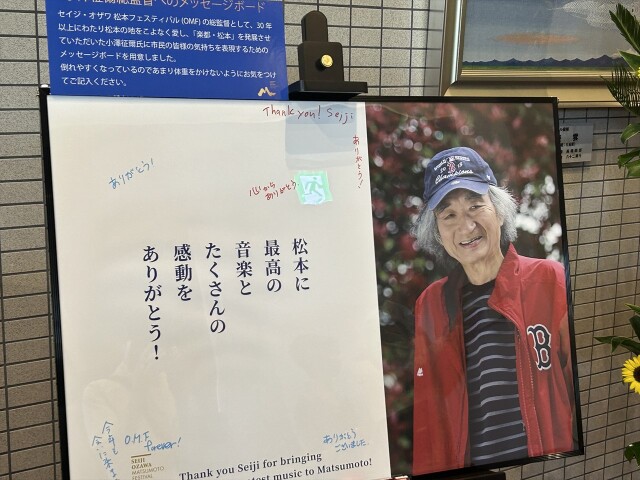 へのメッセージボード
セイジ・オザワ 松本フェスティバル (OMF) の総監督として、30 年
以上にわたり松本の地をこよなく愛し、「楽都・松本」を発展させ
ていただいた小澤征爾氏に市民の皆様の気持ちを表現するための
メッセージボードを用意しました。
倒れやすくなっているのであまり体重をかけないようにお気をつけ
てご記入ください。
Thank you! Seiji
ありがとう！
ありがとう！
心から
ありがとう
松本に
最高の
音楽と
たくさんの
感動を
ありがとう！
O.M.F.
forever!
ありがとう
ございました
SEIJI
OZAWA
MATSUMOTO
FESTIVAL
Thank you Seiji for bringing
music to Matsumoto!
WORLD SERIES
2013
Champions
B